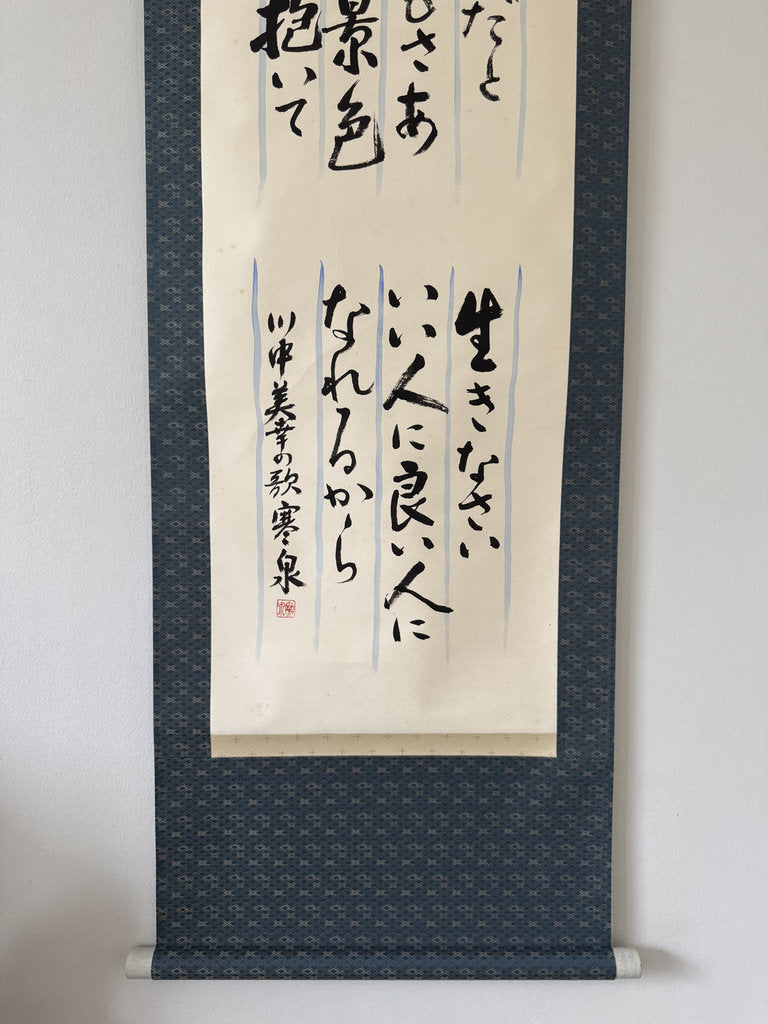 だと
さあ
景色
抱いて
生きなさい
いい人に良い人に
なれるから
川中美幸の歌 寒泉